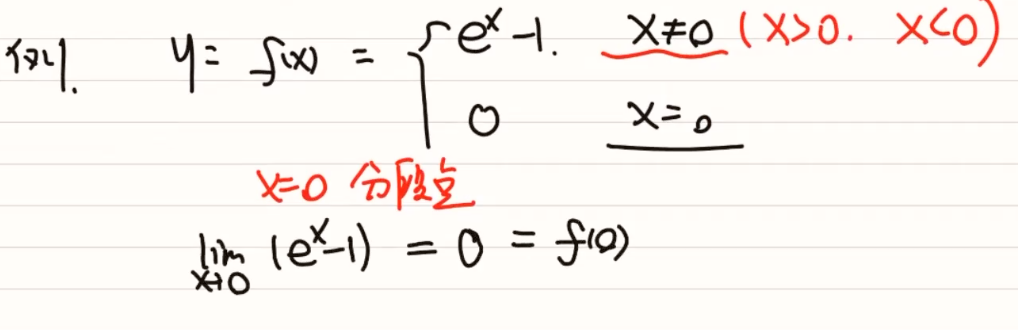 例. y = f(x) = { e^x - 1. x≠0 (x>0. x<0)
0 x=0
x=0 分段点
lim x→0 (e^x-1) = 0 = f(0)